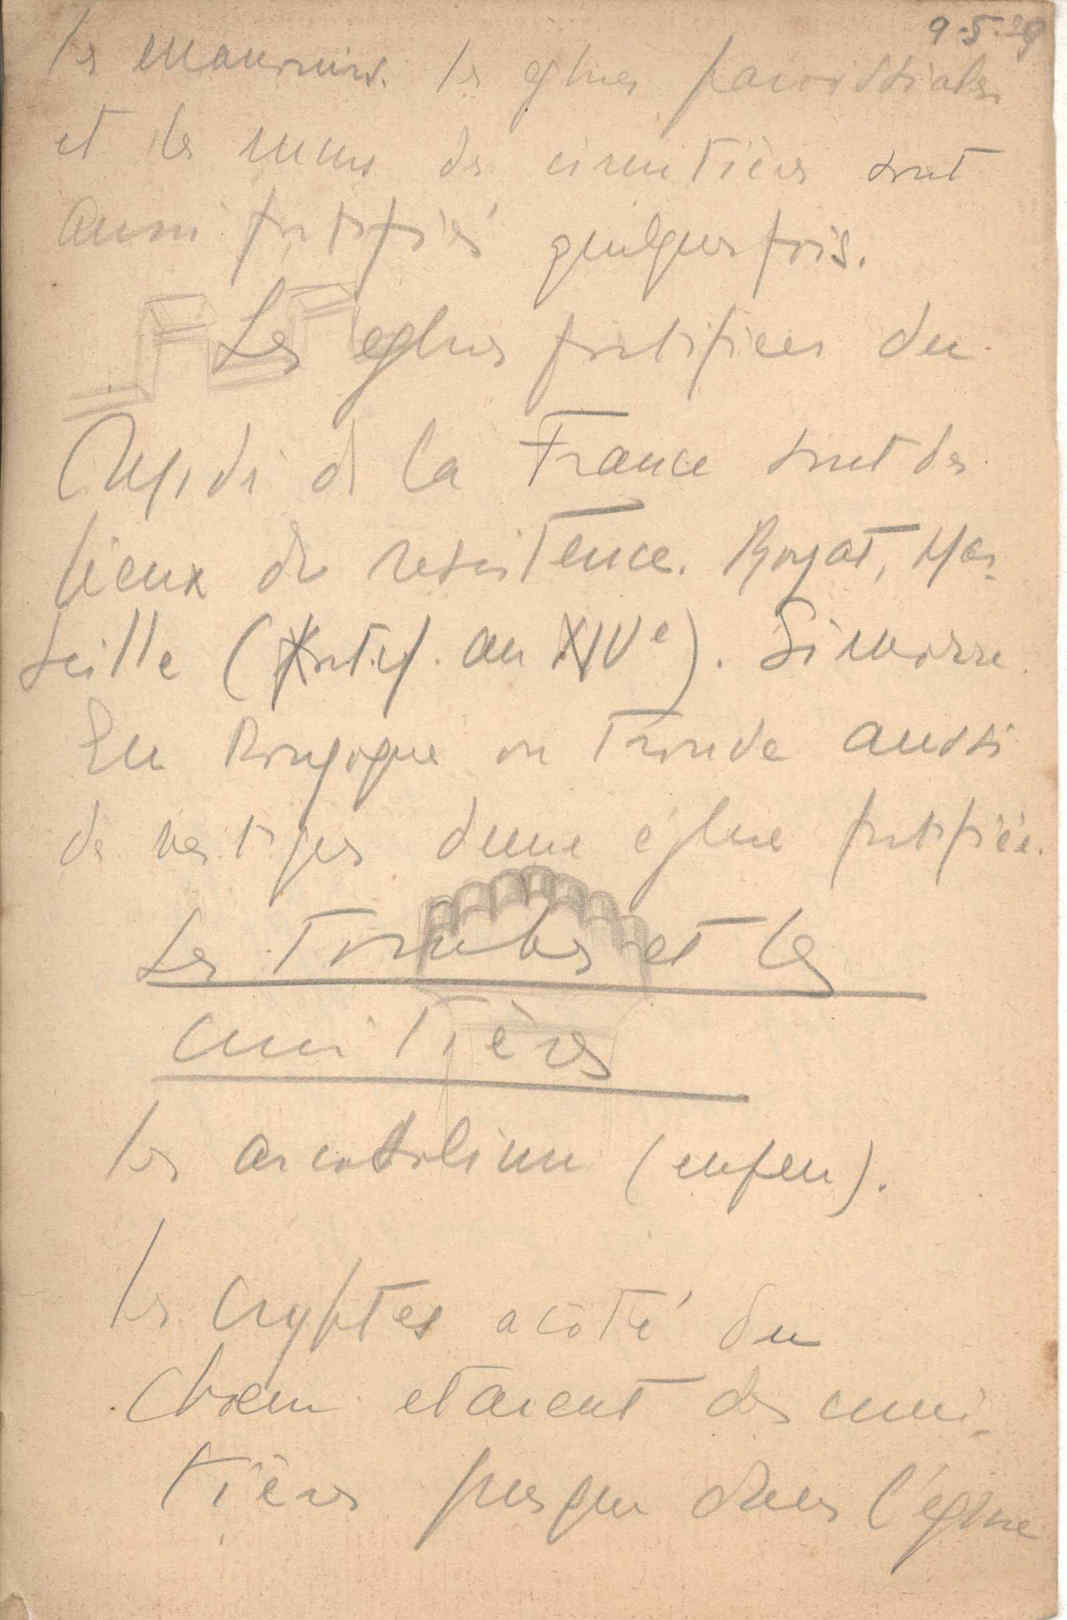 9.5.29
les maurains. les eglises paroissiales
et les murs des cimitières sont
aussi fortifiés quelques fois.
Les eglises fortifiees du
Midi de la France sont des
lieux de resistence. Royat, Mar-
seille (fortif. au XIVe). Simorre.
En on trouve aussi
de vestiges d'une église fortifiée.
Les Tombes et les
cimitières
les arcosolium (enfeu).
les cryptes a côté du
choeur etaient des cimi-
tières presque dans l'église